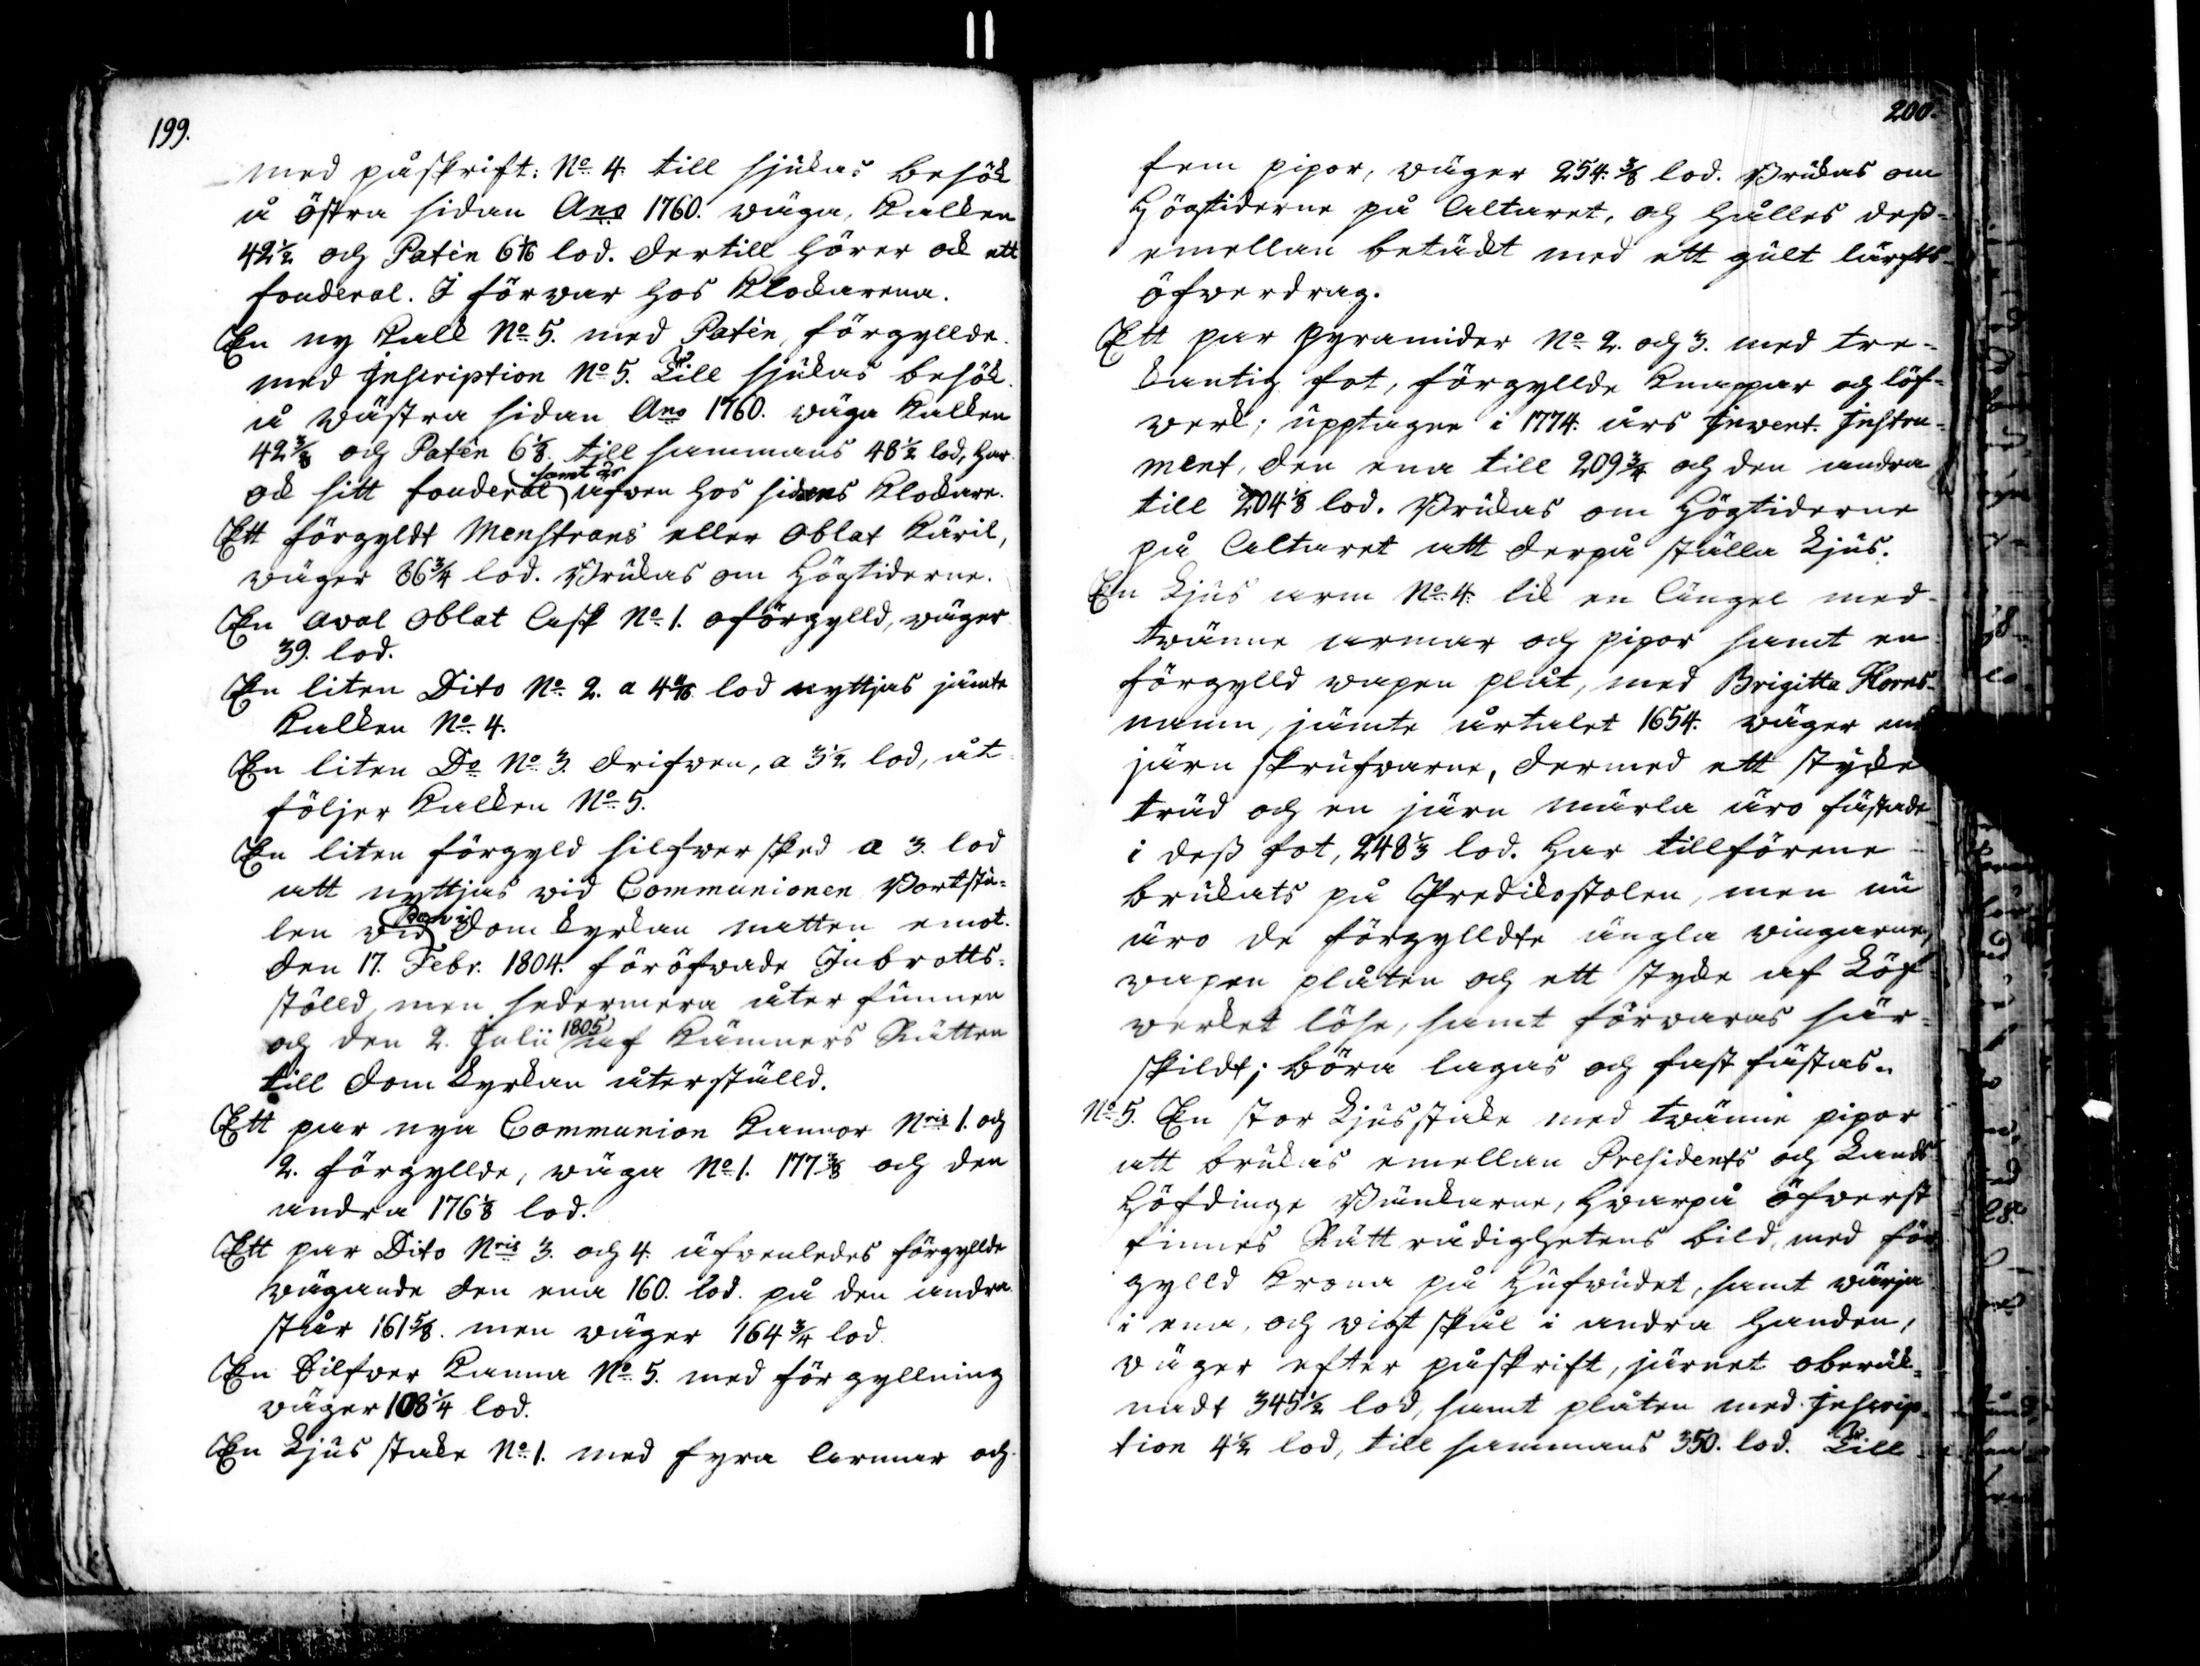 199.
med påskrift: No 4. till sjukas besök
å östra sidan Ano 1760. wäga, kalken
42½ och Patèn 6 1/16 lod. dertill hörer ock ett
fouderal. I förwar hos Klockarena.
En ny kalk No 5. med Patèn, förgyllde.
med Inscription No 5. Till sjukas besök.
å wästra sidan Ano 1760. wäga kalken
42 3/8 och Patèn 6 1/8. till sammans 48½ lod, har
ock sitt fouderal samt är äfven hos sidans Klockare.
Ett förgyldt Menstrans eller oblat käril,
wäger 86¾ lod. Brukas om Högtiderne.
En aval oblat ask No 1. oförgylld, wäger
39. lod.
En liten Dito No 2. a lod nyttjas jämte
kalken No 4.
En liten Do No 3. drifven, a 3½ lod, åt
följer kalken No 5.
En liten förgyld silfwer sked a 3. lod
att nyttjas vid Communionen Bortstu-
len dom kyrkan natten emot.
den 17. Febr. 1804. föröfvade Inbrotts-
stöld, men sedermera åter funnen
och den 2. Julii 1805 af Kämners Rätten
till dom kyrkan återställd.
Ett par nya Communion kannor Nris 1. och
2. förgyllde, wäga No 1. 177 3/8 och den
andra 176 1/8 lod.
Ett par Dito Nris 3. och 4. äfvenledes förgyllde
wägande den ena 160. lod. på den andra
står 161 5/8. men wäger 164¾ lod.
En Silfver kanna No 5. med förgyllning
wäger 108¼ lod.
En Ljus stake No 1. med fyra armar och
200.
fem pipor, wäger 254. 3/8 lod. Brukas om
Högtiderne på Altaret, och hålles dess-
emellan betäckt med ett gult lärfts-
öfwerdrag.
Ett par pyramider No 2. och 3. med tre-
kantig fot, förgyllde knappar och löf-
werk; upptagne i 1774. års Invent. Instru-
ment, den ena till 209¾ och den andra
till 204 1/8 lod. Brukas om Högtiderne
på Altaret att derpå ställa Ljus.
En Ljus arm No 4. lik en Ängel med
twänne armar och pipor samt en
förgylld wapen plåt, med Brigitta Horns
namn, jämte årtalet 1654. wäger
järn skrufvarne, dermed ett stycke
träd och en järn märla äro fästade
i dess fot, 248 1/3 lod. Har tillförene
brukats på Predikostolen, men nu
äro de förgylldte ängla wingarne,
wapen plåten och ett stycke af Löf-
werket löse, samt förvaras sär-
skildt; böra lagas och fast fästas.
No 5. En stor Ljusstake med twänne pipor
att brukas emellan Presidents och Lands
Höfdinge Bänkarne, hwarpå öfwerst
finnes Rätt rådighetens bild, med för
gylld krona på hufwudet, samt wärja
i ena, och vigt skål i andra handen,
wäger efter påskrift, järnet oberäk-
nadt 345½ lod, samt plåten med Inscrip-
tion 4½ lod, till sammans 350. lod. Till